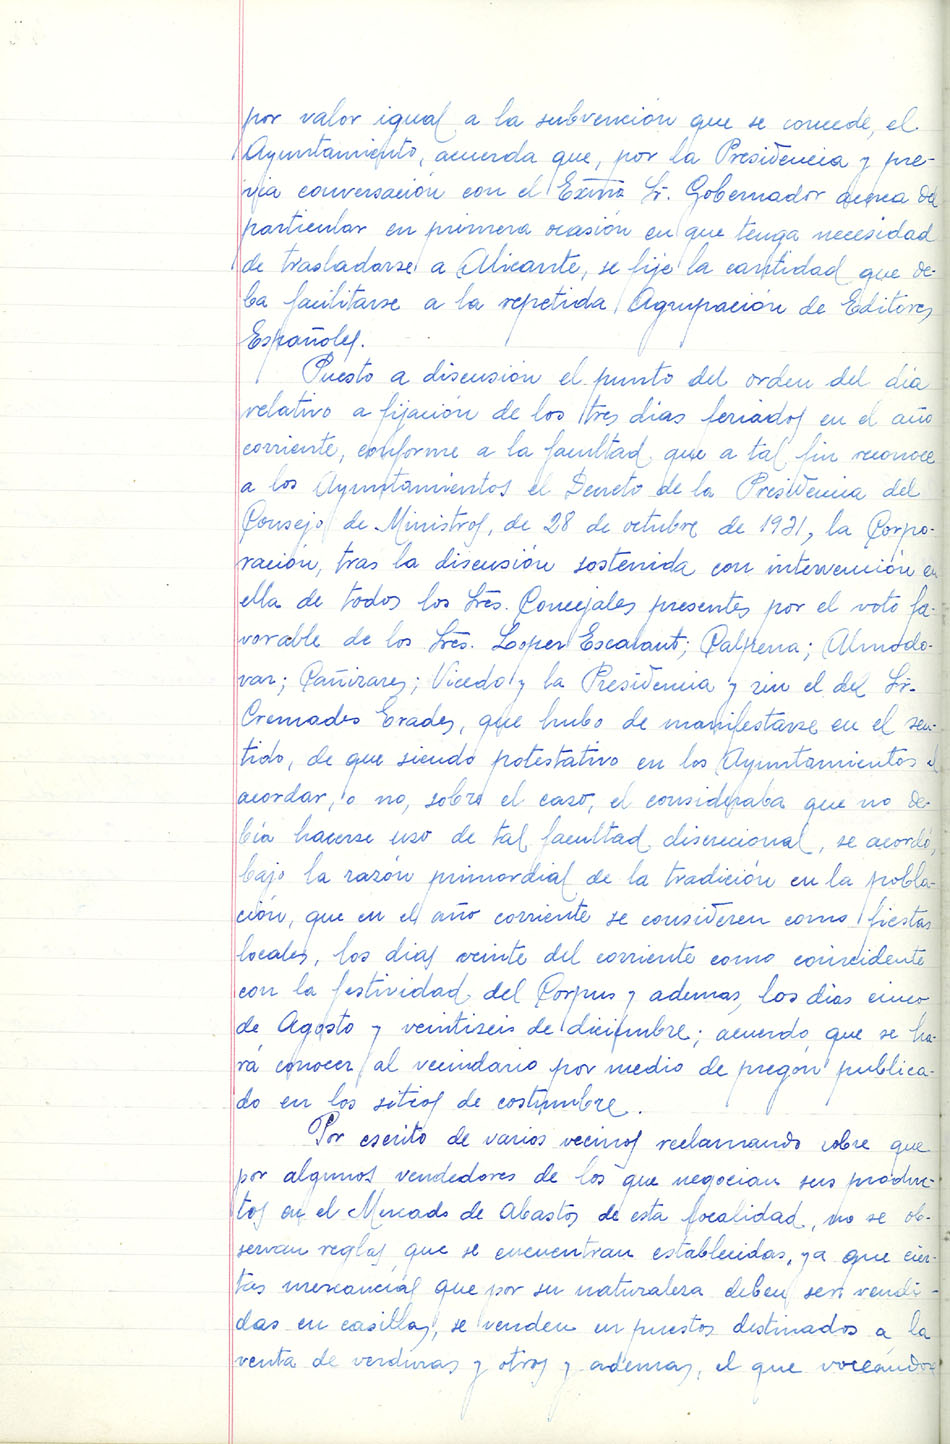 por valor igual a la subvención que se concede, el
Ayuntamiento, acuerda que, por la Presidencia y pre-
via conversación con el Exmo Sr. Gobernador acerca del
particular en primera ocasión en que tenga necesidad
de trasladarse a Alicante, se fije la cantidad que de-
ba facilitarse a la repetida Agrupación de Editores
Españoles.
Puesto a discusión el punto del orden del día
relativo a fijación de los tres dias feriados en el año
corriente, conforme a la facultad que a tal fin reconoce
a los Ayuntamientos el Decreto de la Presidencia del
Consejo de Ministros, de 28 de octubre de 1931, la Corpo-
ración, tras la discusión sostenida con intervención en
ella de todos los Sres. Concejales presentes por el voto fa-
vorable de los Sres. Lopez Escalant; Calpena; Almodo-
var; Cañizares; Vicedo y la Presidencia y sin el del Sr.
Cremades Erades, que hubo de manifestarse en el sen-
tido, de que siendo potestativo en los Ayuntamientos el
acordar, o no, sobre el caso, el consideraba que no de-
bía hacerse uso de tal facultad discrecional, se acordó,
bajo la razón primordial de la tradición en la pobla-
ción, que en el año corriente se consideren como fiestas
locales, los dias veinte del corriente como coincidente
con la festividad del Corpus y ademas, los dias cinco
de Agosto y veintiseis de diciembre; acuerdo que se ha-
rá conocer al vecindario por medio de pregón publica-
do en los sitios de costumbre.
Por escrito de varios vecinos reclamando sobre que
por algunos vendedores de los que negocian sus produc-
tos en el Mercado de Abastos de esta localidad, no se ob-
servan reglas que se encuentran establecidas, ya que cier-
tas mercancías que por su naturaleza deben ser vendi-
das en casillas, se venden en puestos destinados a la
venta de verduras y otros y ademas, el que voceandose